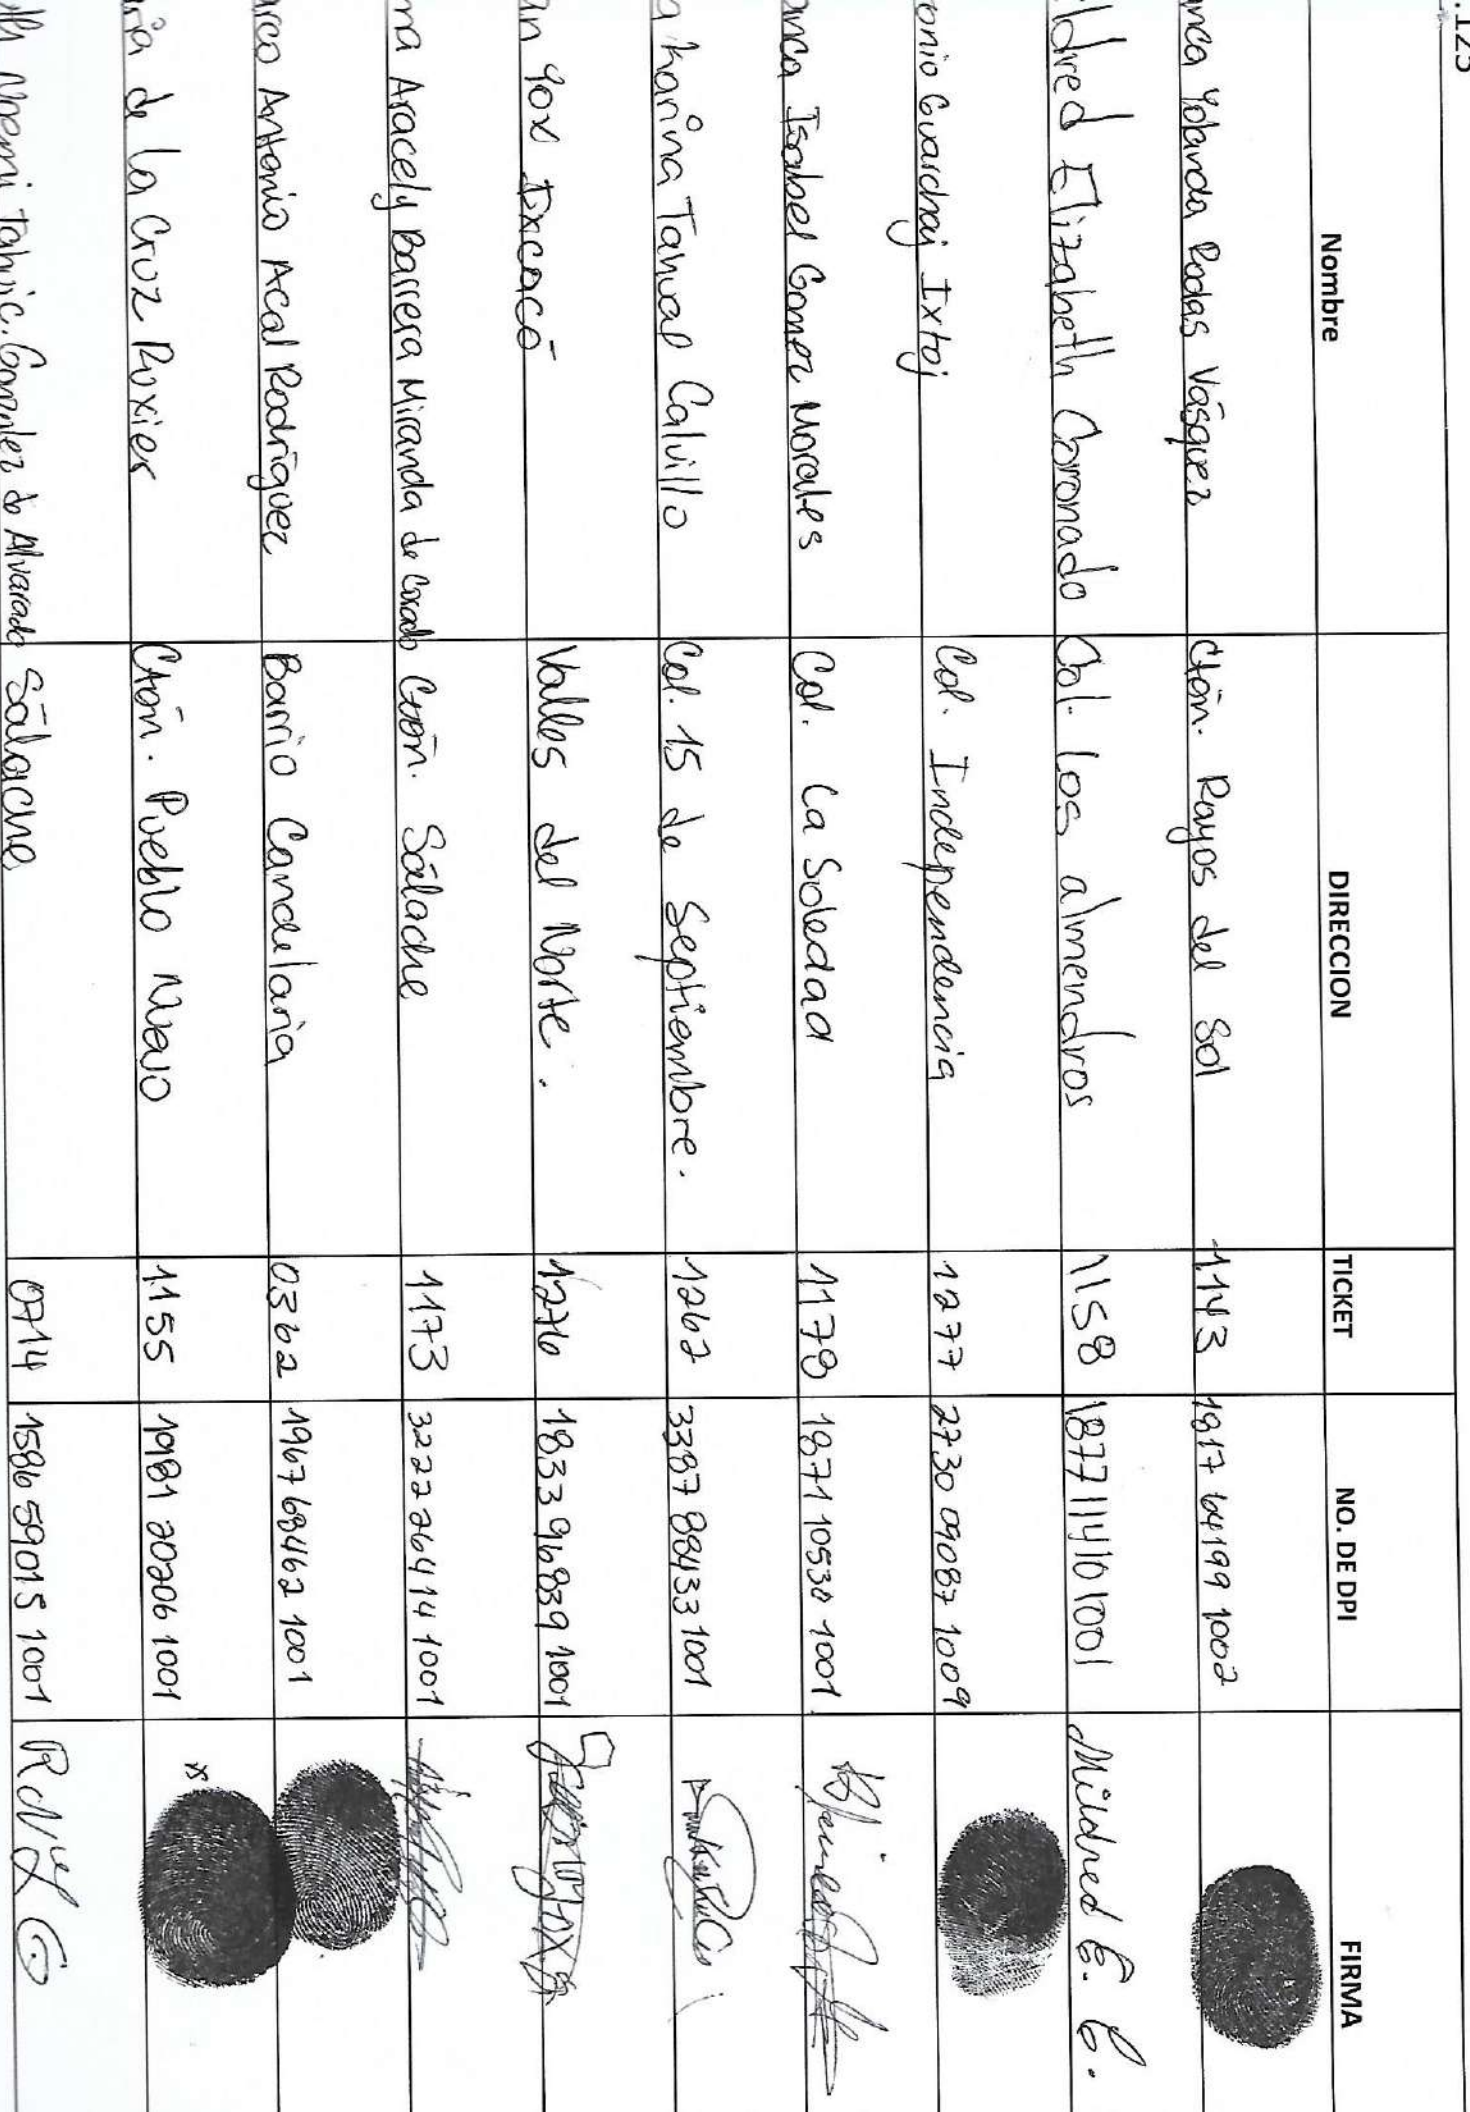 .125
Nombre DIRECCION TICKET NO. DE DPI FIRMA
anca Yolanda Rodas Vásquez Ctón. Rayos del Sol 1143 1817 64199 1002
ldred Elizabeth Coronado Col. los almendros 1158 1877 11410 1001 Mildred E. C.
onio Guarchaj Ixtoj Col. Independencia 1277 2730 09087 1009
anca Isabel Gomez Morales Col. La Soledad 1178 1871 10530 1001
a Karina Tahual Calvillo Col. 15 de Septiembre. 1262 3387 88433 1001
an Yox Ixcacó Valles del Norte. 1276 1833 96839 1001
ma Aracely Barrera Miranda de Coxado Ctón. Sálache 1173 3222 26414 1001
arco Antonio Acal Rodríguez Barrio Candelaria 0362 1967 68462 1001
ria de la Cruz Puxier Ctón. Pueblo Nuevo 1155 1981 20206 1001
Noemi Tahuic. Gonzalez de Alvarado Sálache 0714 1586 59015 1001